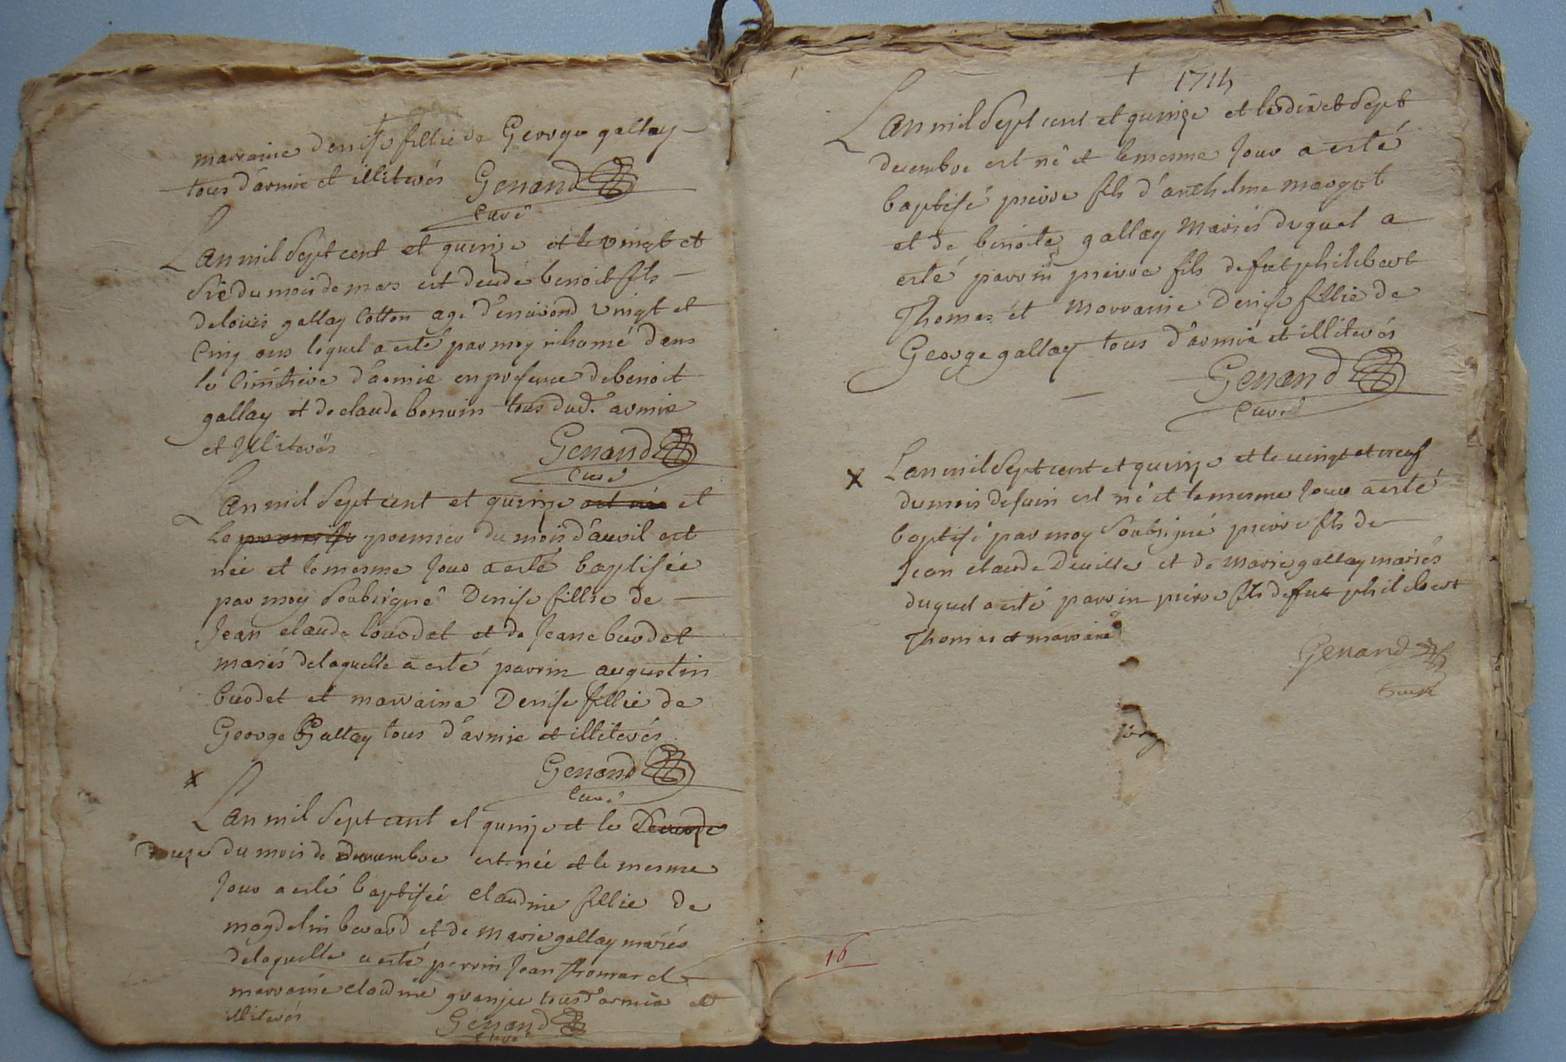 marraine denise fillie de George gallay
tous d'armix et illiterés Genand
Curé
Lan mil sept cent et quinze et le vingt et
du mois de mars est decedé benoit fils
de louis gallay Cotton agé d'environd vingt et
Cinq ans lequel a esté par moy inhumé dans
le cimitiere d'armix en presence de benoit
gallay et de claude bonuin tous dud. armix
et Illiterés Genand
Curé
Lan mil sept cent et quinze est née et
le premier du mois d'auril est
née et le mesme Jour a esté baptisée
par moy soubsigné Denise fillie de
Jean claude bourdet et de Jeane burdet
mariés delaquelle a esté parrin augustin
burdet et marraine Denise fillie de
George Gallay tous d'armix et illiterés
Genand
Curé
x
Lan mil sept cent et quinze et le
douze du mois de decembre est née et le mesme
Jour a esté baptisée claudine fillie de
magdelin berard et de Marie gallay mariés
delaquelle a esté parrin Jean Thomas et
marraine claudine granjee tous d'armix et
illiterés Genand
Curé
+ 1715
Lan mil sept cent et quinze et le dix et sept
decembre est né et le mesme Jour a esté
baptisé pierre fils d'anthelme margot
et de benoite gallay Mariés duquel a
esté parrin pierre fils de fut philibert
Thomas et Marraine Denise fillie de
George gallay tous d'armix et illiterés
Genand
Curé
x Lan mil sept cent et quinze et le vingt et neuf
du mois de Juin est né et le mesme Jour a esté
baptisé par moy soubsigné pierre fils de
Jean claude Deville et de Marie gallay mariés
duquel a esté parrin pierre fils de fut philibert
Thomas et marraine
Genand
Curé
16